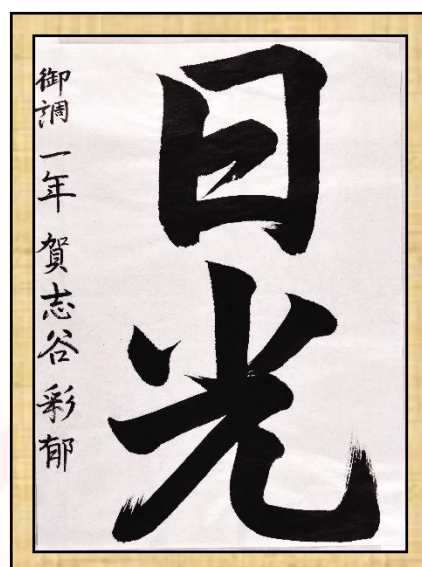 日光
御調 一年 賀志谷 彩郁